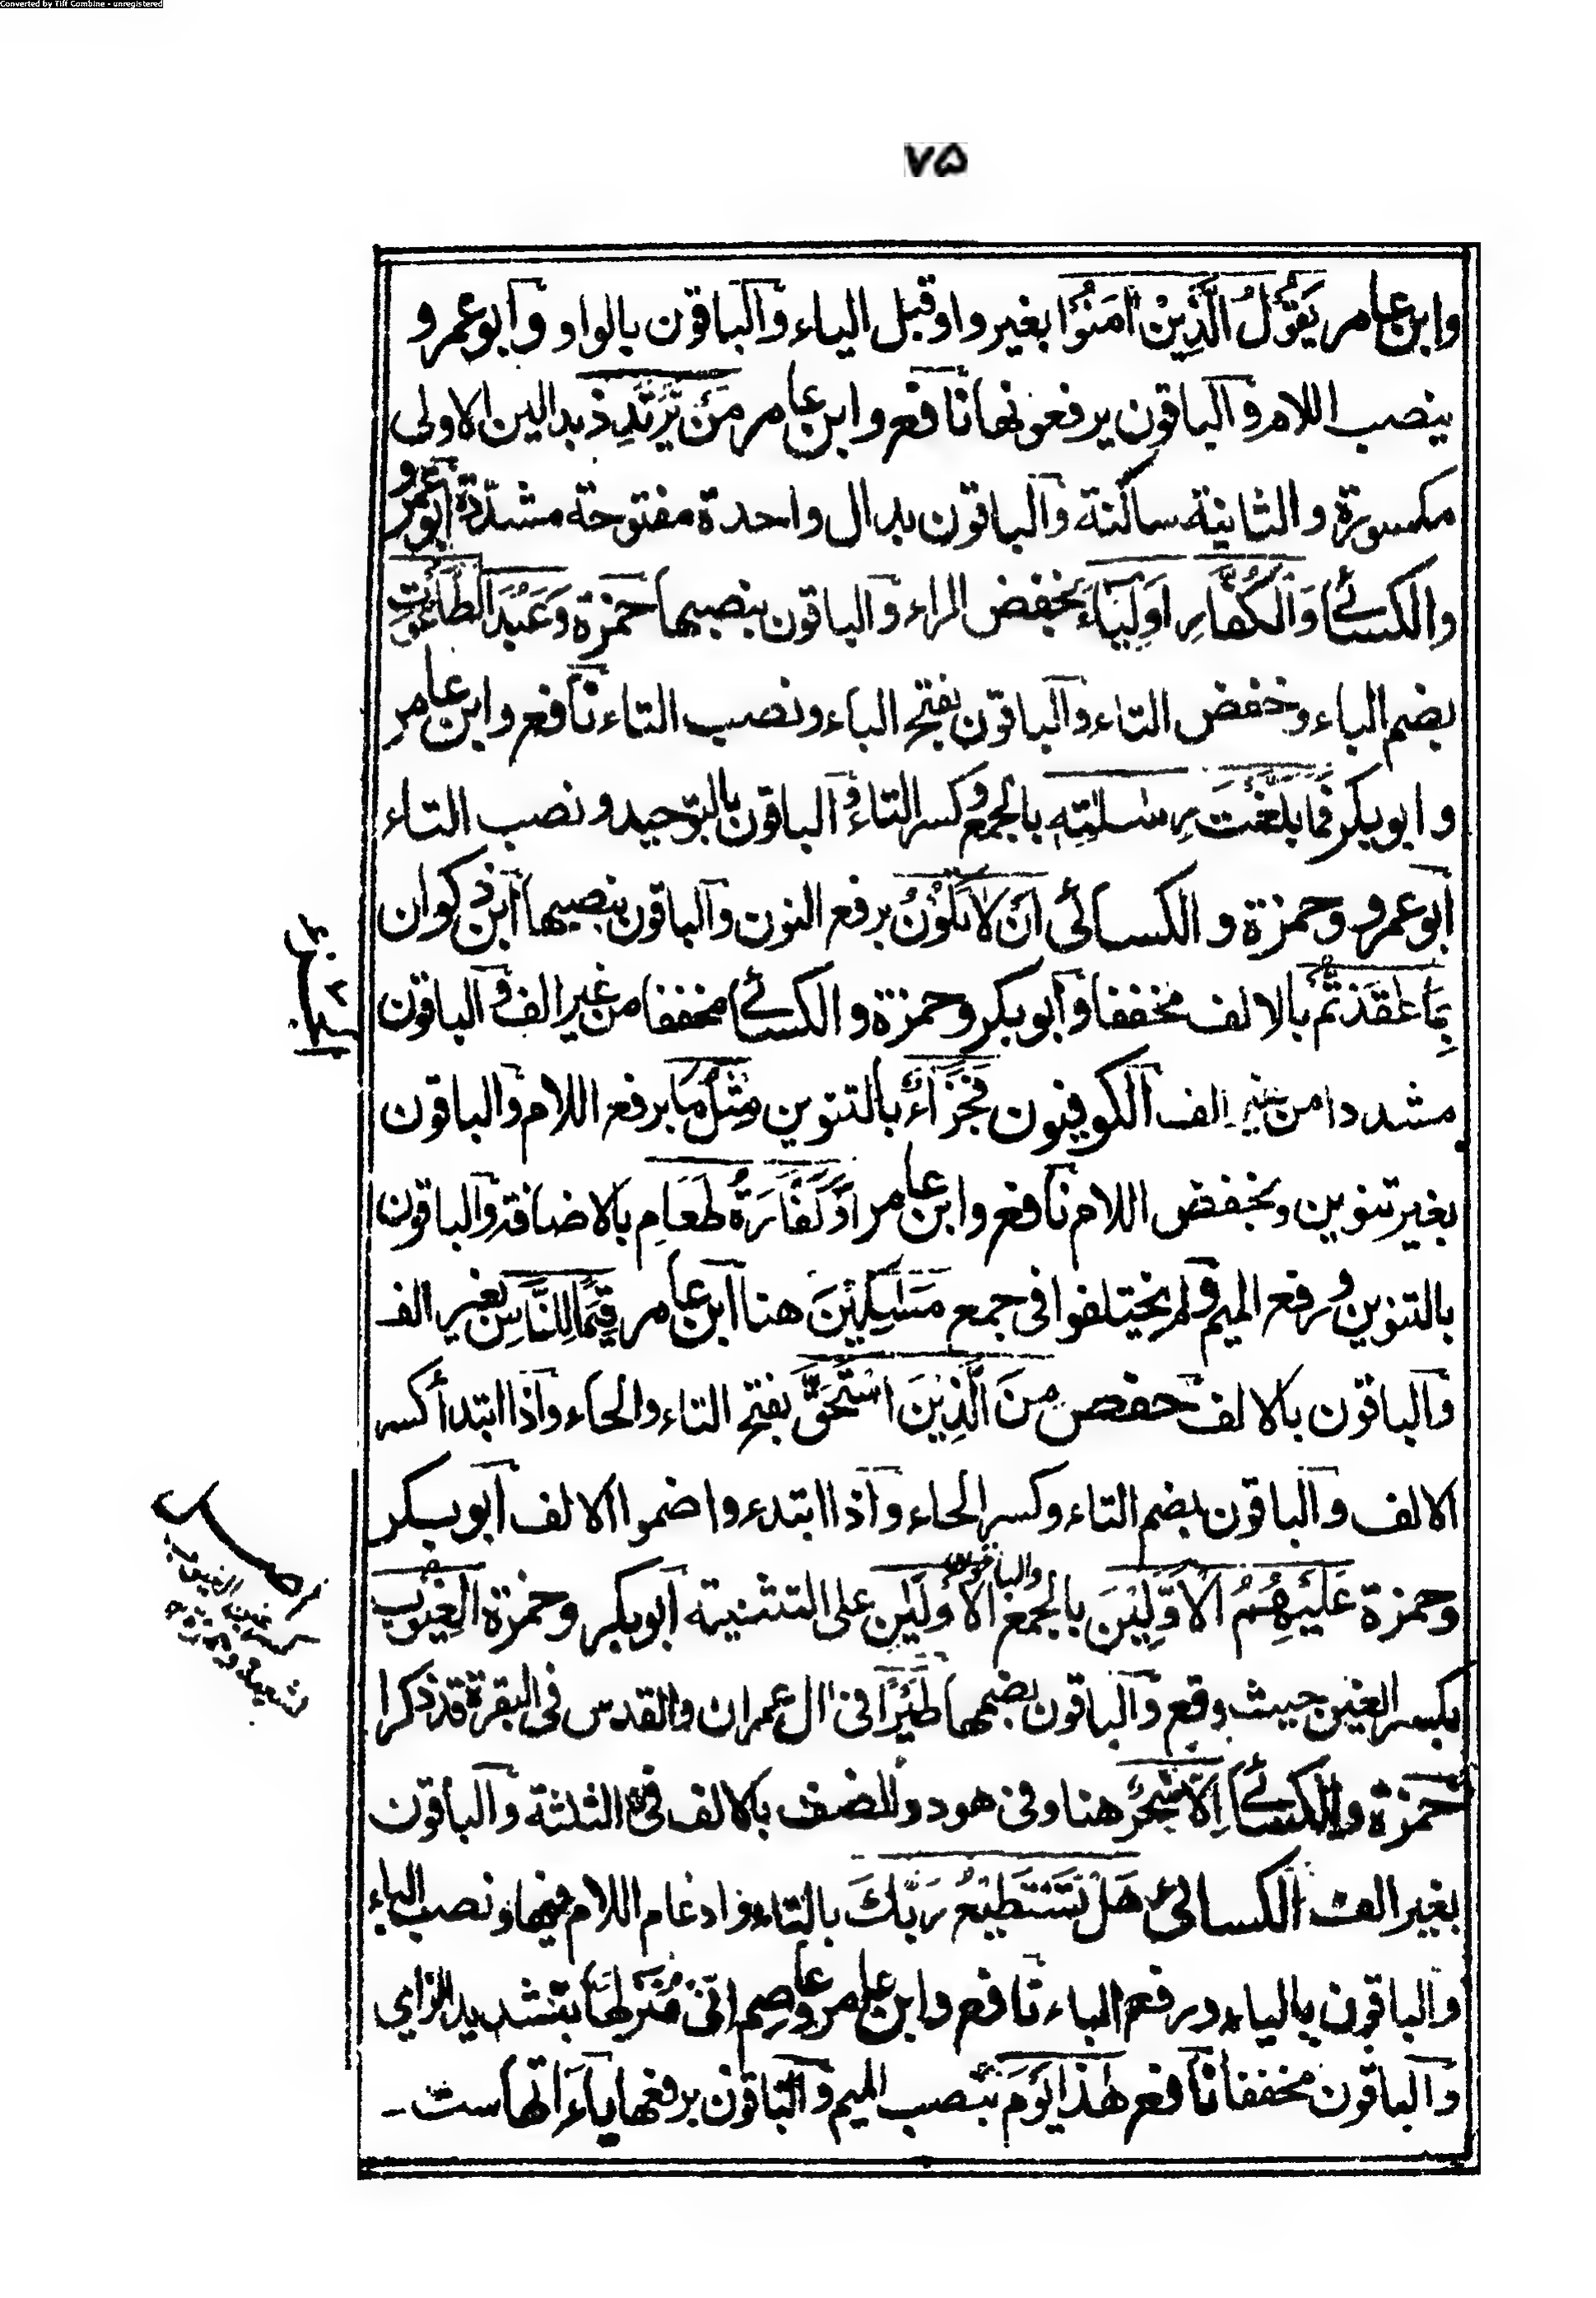 Converted by Tiff Combine - unregistered
۷۵
وابن عامر يَقُوْلُ الَّذِيْنَ اٰمَنُوْا بغير واو قبل الياء والباقون بالواو وابو عمرو
ينصب اللام والباقون يرفعونها نافع وابن عامر مَنْ يَّرْتَدِدْ بدالين الاولى
مكسورة والثانية ساكنة والباقون بدال واحدة مفتوحة مشدّدة ابو عمرو
والكسائى وَالْكُفَّارِ اَوْلِيَاءَ بخفض الراء والباقون بنصبها حمزة وَعَبُدَ الطَّاغُوْتِ
بضم الباء وخفض التاء والباقون بفتح الباء ونصب التاء نافع وابن عامر
وابوبكر فما بَلَّغْتَ رِسٰلٰتِهٖ بالجمع وكسر التاء والباقون بالتوحيد ونصب التاء
ابو عمرو وحمزة والكسائى اَنْ لَا تَكُوْنُ برفع النون والباقون بنصبها ابن ذكوان
بِمَا عٰقَدْتُّمْ بالالف مخففا وابوبكر وحمزة والكسائى مخففا من غير الف والباقون
مشددا من غير الف الكوفيون فَجَزَاءٌ بالتنوين مِثْلُ مَا برفع اللام والباقون
بغير تنوين وبخفض اللام نافع وابن عامر اَوْ كَفَّارَةُ طَعَامِ بالاضافة والباقون
بالتنوين ورفع الميم ولم يختلفوا فى جمع مَسٰكِيْنَ هنا ابن عامر قِيَمًا لِلنَّاسِ بغير الف
والباقون بالالف حفص مِنَ الَّذِيْنَ اسْتَحَقَّ بفتح التاء والحاء واذا ابتدأ كسر
الالف والباقون بضم التاء وكسر الحاء واذا ابتدءوا ضموا الالف ابوبكر
وحمزة عَلَيْهِمُ الْاَوَّلِيْنَ بالجمع والباقون الْاَوْلَيٰنِ على التثنية ابوبكر وحمزة الْغِيُوْبِ
بكسر الغين حيث وقع والباقون بضمها طَيْرًا فى اٰل عمران والقدس فى البقرة قد ذكرا
حمزة والكسائى اِلَّا سٰحِرٌ هنا وفى هود والصف بالالف فى الثلثة والباقون
بغير الف الكسائى هَلْ تَسْتَطِيْعُ رَبَّكَ بالتاء وادغام اللام فيها ونصب الباء
والباقون بالياء ورفع الباء نافع وابن عامر وعاصم انى مُنَزِّلُهَا بتشديد الزاى
والباقون مخففا نافع هٰذَا يَوْمَ بنصب الميم والباقون برفعها ياءاتها ست ۔